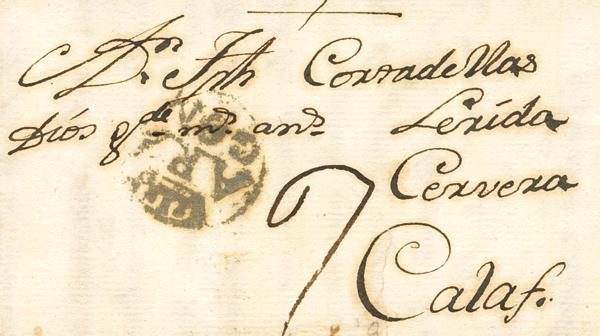 A Dn. Jph Cortadellas
Dios gde. ms. ans. Lerida
Cervera
7
Calaf.